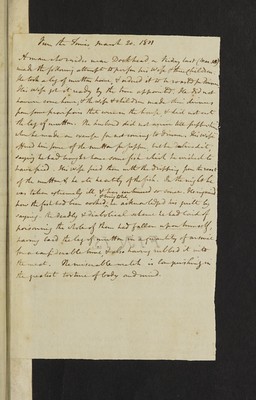 From the Times March 20, 1811
A man who resides near Dockhead on Friday last
made the following attempt to poison his Wife & three children
He took a leg of mutton home, & ordered it to be cooked for dinner
His wife got it ready by the time appointed. He did not
however come home, & the wife & children made their dinners
from some provisions that were in the house & did not cut
the leg of mutton. The husband did not come till
when he made an excuse for not coming to dinner. His Wife
offered him some of the mutton for supper but he refused it,
saying he had bought home some fish which he wished to
have fried. His wife fried them with the dripping from the meat
of the mutton & he ate heartily of the fish. In the night he
was taken extremely ill, & has continued so since. Having
how the fish had been cooked, he acknowledged his guilt by
saying, the deadly & diabolical scheme he had laid of
poisoning the whole of them had fallen upon himself,
having laid the leg of mutton in a quantity of arsenic
for a considerable time, & also having rubbed it into
the meat. The miserable wretch is languishing in
the greatest torture of body and mind.